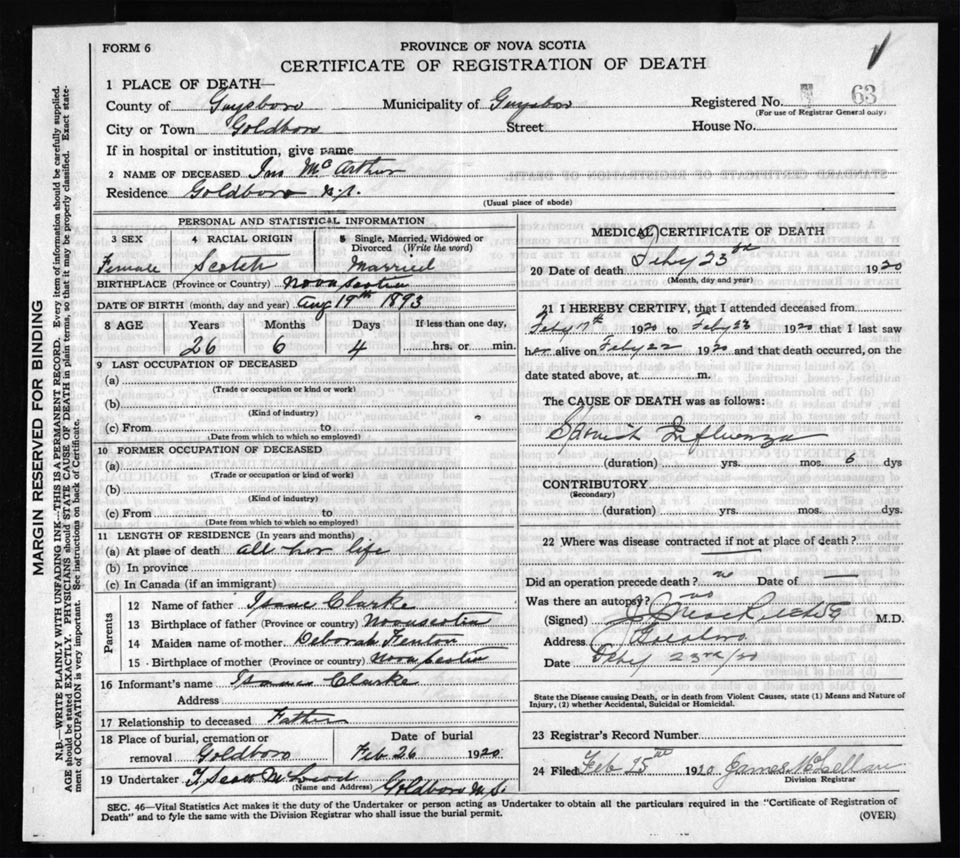 FORM 6
PROVINCE OF NOVA SCOTIA
CERTIFICATE OF REGISTRATION OF DEATH
1 PLACE OF DEATH
County of Guysboro Municipality of Guysboro Registered No. 63
(For use of Registrar General only)
City or Town Goldboro Street House No.
If in hospital or institution, give name
2 NAME OF DECEASED McArthur
Residence Goldboro N.S.
(Usual place of abode)
PERSONAL AND STATISTICAL INFORMATION
3 SEX 4 RACIAL ORIGIN 5 Single, Married, Widowed or Divorced (Write the word)
Female Scotch Married
BIRTHPLACE (Province or Country) Nova Scotia
DATE OF BIRTH (month, day and year) Aug 19th 1893
8 AGE Years Months Days If less than one day,
26 6 4 hrs. or min.
9 LAST OCCUPATION OF DECEASED
(a)
(Trade or occupation or kind or work)
(b)
(Kind of industry)
(c) From to
(Date from which to which so employed)
10 FORMER OCCUPATION OF DECEASED
(a)
(Trade or occupation or kind of work)
(b)
(Kind of industry)
(c) From to
(Date from which to which so employed)
11 LENGTH OF RESIDENCE (In years and months)
(a) At place of death all her life
(b) In province
(c) In Canada (if an immigrant)
Parents
12 Name of father Isaac Clarke
13 Birthplace of father (Province or country) Nova Scotia
14 Maiden name of mother Deborah Fenton
15 Birthplace of mother (Province or country) Nova Scotia
16 Informant's name Isaac Clarke
Address
17 Relationship to deceased Father
18 Place of burial, cremation or removal Goldboro Date of burial Feb 26 1920
19 Undertaker Scott McLeod Goldboro N.S.
(Name and Address)
MEDICAL CERTIFICATE OF DEATH
20 Date of death Feby 23rd 1920
(Month, day and year)
21 I HEREBY CERTIFY, that I attended deceased from
Feby 17th 1920 to Feby 23 1920 that I last saw
her alive on Feby 22 1920 and that death occurred, on the
date stated above, at m.
The CAUSE OF DEATH was as follows:
Spanish Influenza
(duration) yrs. mos. 6 dys
CONTRIBUTORY
(Secondary)
(duration) yrs. mos. dys.
22 Where was disease contracted if not at place of death?
Did an operation precede death? no Date of —
Was there an autopsy? no
(Signed) M.D.
Address Goldboro
Date Feby 23rd/20
State the Disease causing Death, or in death from Violent Causes, state (1) Means and Nature of
Injury, (2) whether Accidental, Suicidal or Homicidal.
23 Registrar's Record Number
24 Filed Feb 25th 1920 James McLellan
Division Registrar
SEC. 46—Vital Statistics Act makes it the duty of the Undertaker or person acting as Undertaker to obtain all the particulars required in the "Certificate of Registration of
Death" and to fyle the same with the Division Registrar who shall issue the burial permit.
(OVER)
MARGIN RESERVED FOR BINDING
N.B.—WRITE PLAINLY WITH UNFADING INK—THIS IS A PERMANENT RECORD. Every item of information should be carefully supplied.
AGE should be stated EXACTLY. PHYSICIANS should STATE CAUSE OF DEATH in plain terms, so that it may be properly classified. Exact state-
ment of OCCUPATION is very important. See instructions on back of Certificate.